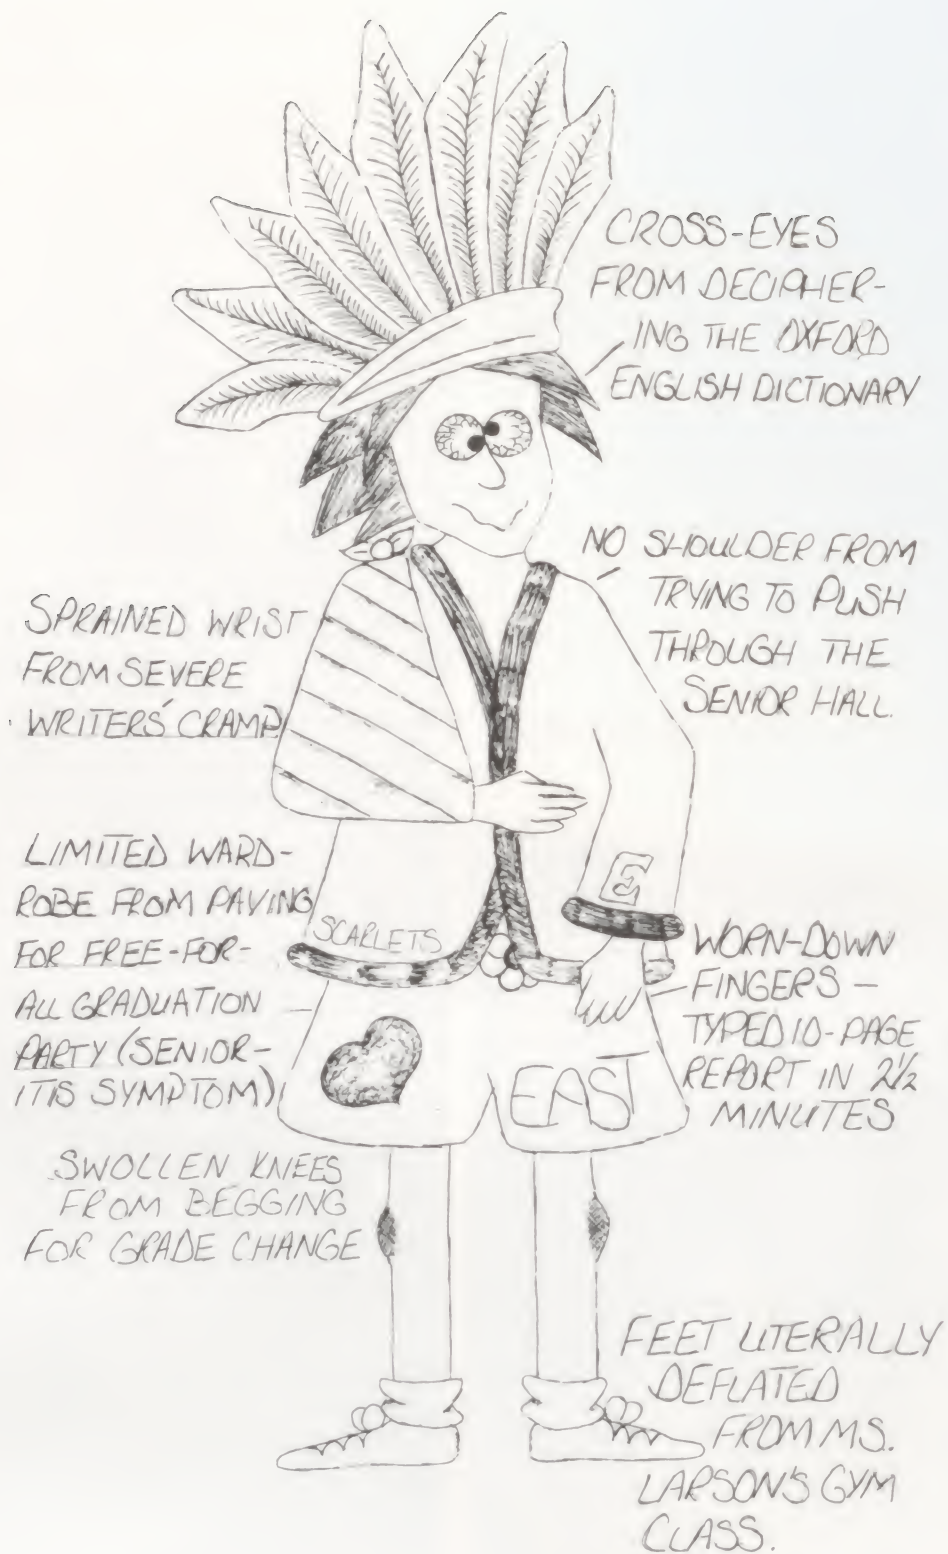 CROSS-EYES
FROM DECIPHER-
ING THE OXFORD
ENGLISH DICTIONARY
NO SHOULDER FROM
TRYING TO PUSH
THROUGH THE
SENIOR HALL.
SPRAINED WRIST
FROM SEVERE
WRITERS' CRAMP
LIMITED WARD-
ROBE FROM PAYING
FOR FREE-FOR-
ALL GRADUATION
PARTY (SENIOR-
ITIS SYMPTOM)
E
SCARLETS
EAST
WORN-DOWN
FINGERS —
TYPED 10-PAGE
REPORT IN 2½
MINUTES
SWOLLEN KNEES
FROM BEGGING
FOR GRADE CHANGE
FEET LITERALLY
DEFLATED
FROM MS.
LARSON'S GYM
CLASS.